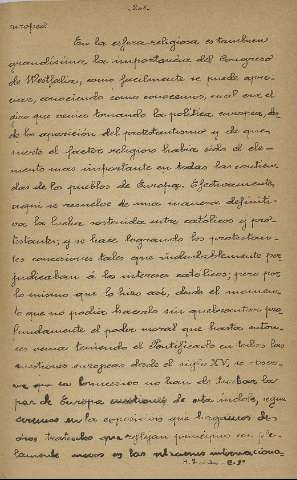 uropea.
En la esfera religiosa es tambien
grandísima la importancia del Congreso
de Westfalia, como facilmente se puede apre-
ciar, conociendo como conocemos, cual era el
giro que venia tomando la política europea, des-
de la aparición del protestantismo y de que
suerte el factor religioso habia sido el ele-
mento mas importante en todas las contien-
das de los pueblos de Europa. Efectivamente,
aqui se resuelve de una manera definiti-
va la lucha sostenida entre católicos y pro-
testantes, y se hace logrando los protestan-
tes concesiones tales que indudablemente per-
judicaban á los intereses católicos; pero por
lo mismo que lo hizo asi, desde el momen-
to que no podia hacerlo sin quebrantar pro-
fundamente el poder moral que hasta enton-
ces venia teniendo el Pontificado en todas las
cuestiones europeas desde el siglo XV, se
que en lo sucesivo no han de turbar la
paz de Europa cuestiones de esta indole, segun
veremos en la exposición que hagamos de
otros tratados que reflejan principios
nuevos en las relaciones internaciona-